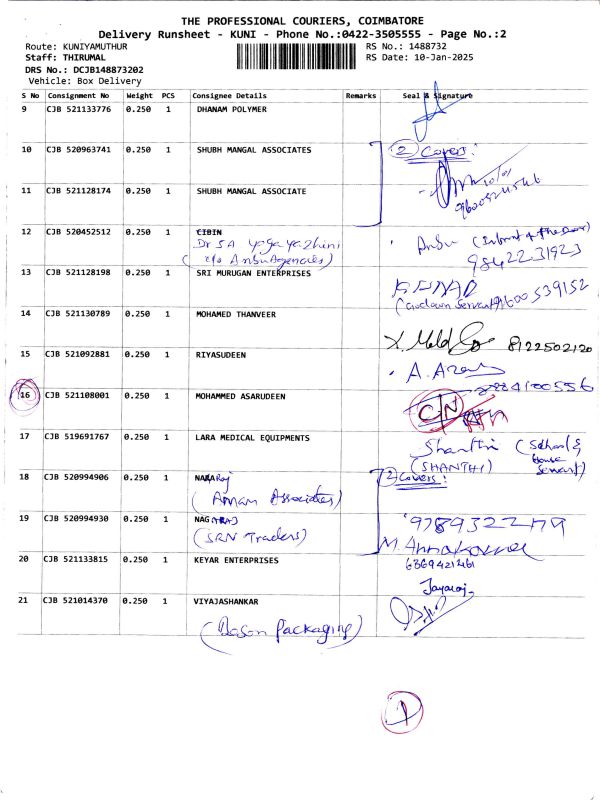 THE PROFESSIONAL COURIERS, COIMBATORE
Delivery Runsheet - KUNI - Phone No.:0422-3505555 - Page No.:2
Route: KUNIYAMUTHUR RS No.: 1488732
Staff: THIRUMAL RS Date: 10-Jan-2025
DRS No.: DCJB148873202
Vehicle: Box Delivery
S No Consignment No Weight PCS Consignee Details Remarks Seal & Signature
9 CJB 521133776 0.250 1 DHANAM POLYMER
10 CJB 520963741 0.250 1 SHUBH MANGAL ASSOCIATES 2 Covers:
11 CJB 521128174 0.250 1 SHUBH MANGAL ASSOCIATE
12 CJB 520452512 0.250 1 CIBIN
Dr SA Yoga Yazhini
(c/o Ansu Agencies)
Ansu (Infront of the Door)
9842231923
13 CJB 521128198 0.250 1 SRI MURUGAN ENTERPRISES
(Godown Servant) 9600539152
14 CJB 521130789 0.250 1 MOHAMED THANVEER
8122502120
15 CJB 521092881 0.250 1 RIYASUDEEN
16 CJB 521108001 0.250 1 MOHAMMED ASARUDEEN CN
17 CJB 519691767 0.250 1 LARA MEDICAL EQUIPMENTS
Shanthi (School &
(SHANTHI) House
Servant)
18 CJB 520994906 0.250 1 NAGAROJ 2 Covers:
(Aman Associates)
19 CJB 520994930 0.250 1 NAGARAJ
(SRN Traders)
20 CJB 521133815 0.250 1 KEYAR ENTERPRISES
6369421461
Jayaraj
21 CJB 521014370 0.250 1 VIYAJASHANKAR
(Dason Packaging)
1